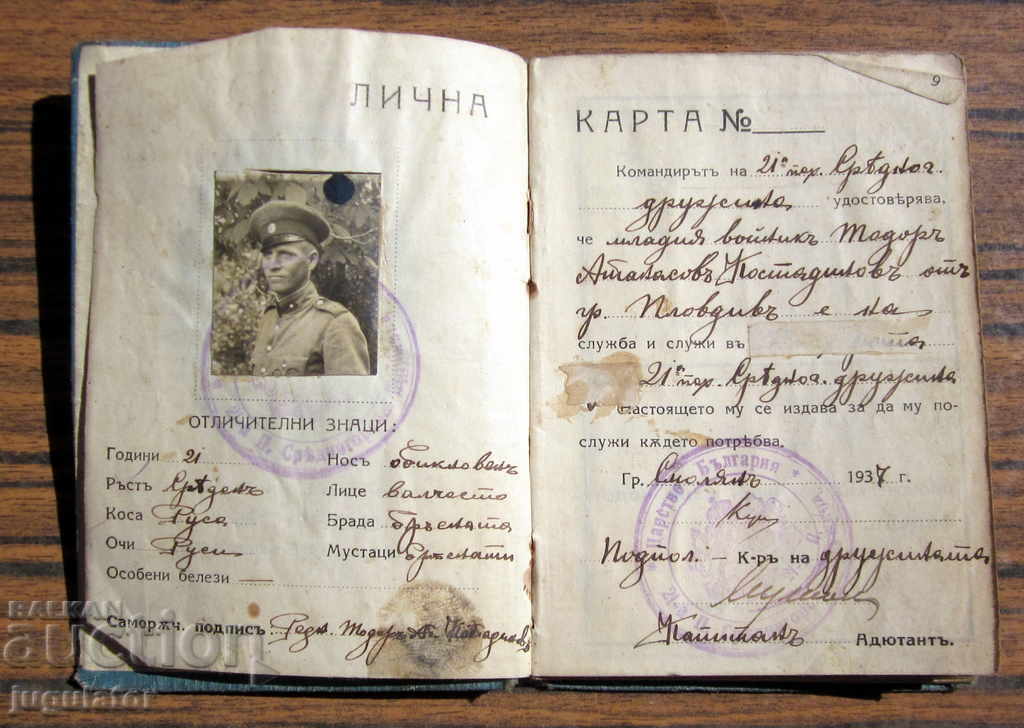 ЛИЧНА
ОТЛИЧИТЕЛНИ ЗНАЦИ:
Години 21 Носъ обикновенъ
Ръстъ Срѣденъ Лице валчесто
Коса Руса Брада бръсната
Очи Руси Мустаци бръснати
Особени белези —
Саморѫч. подпис. Редн. Тодоръ Ат. Костадиновъ
9
КАРТА №
Командирътъ на 21а пех. Срѣдног.
дружина удостовѣрява,
че младия войникъ Тодоръ
Атанасовъ Костадиновъ отъ
гр. Пловдивъ е на
служба и служи въ рота
21а пех. Срѣдног. дружина
Настоящето му се издава за да му по-
служи кѫдето потрѣбва.
Гр. Смолянъ 1937 г.
Подпол. — К-ръ на дружината
Капитанъ Адютантъ.
Царство България
БАЛКАН
auction
jugulator